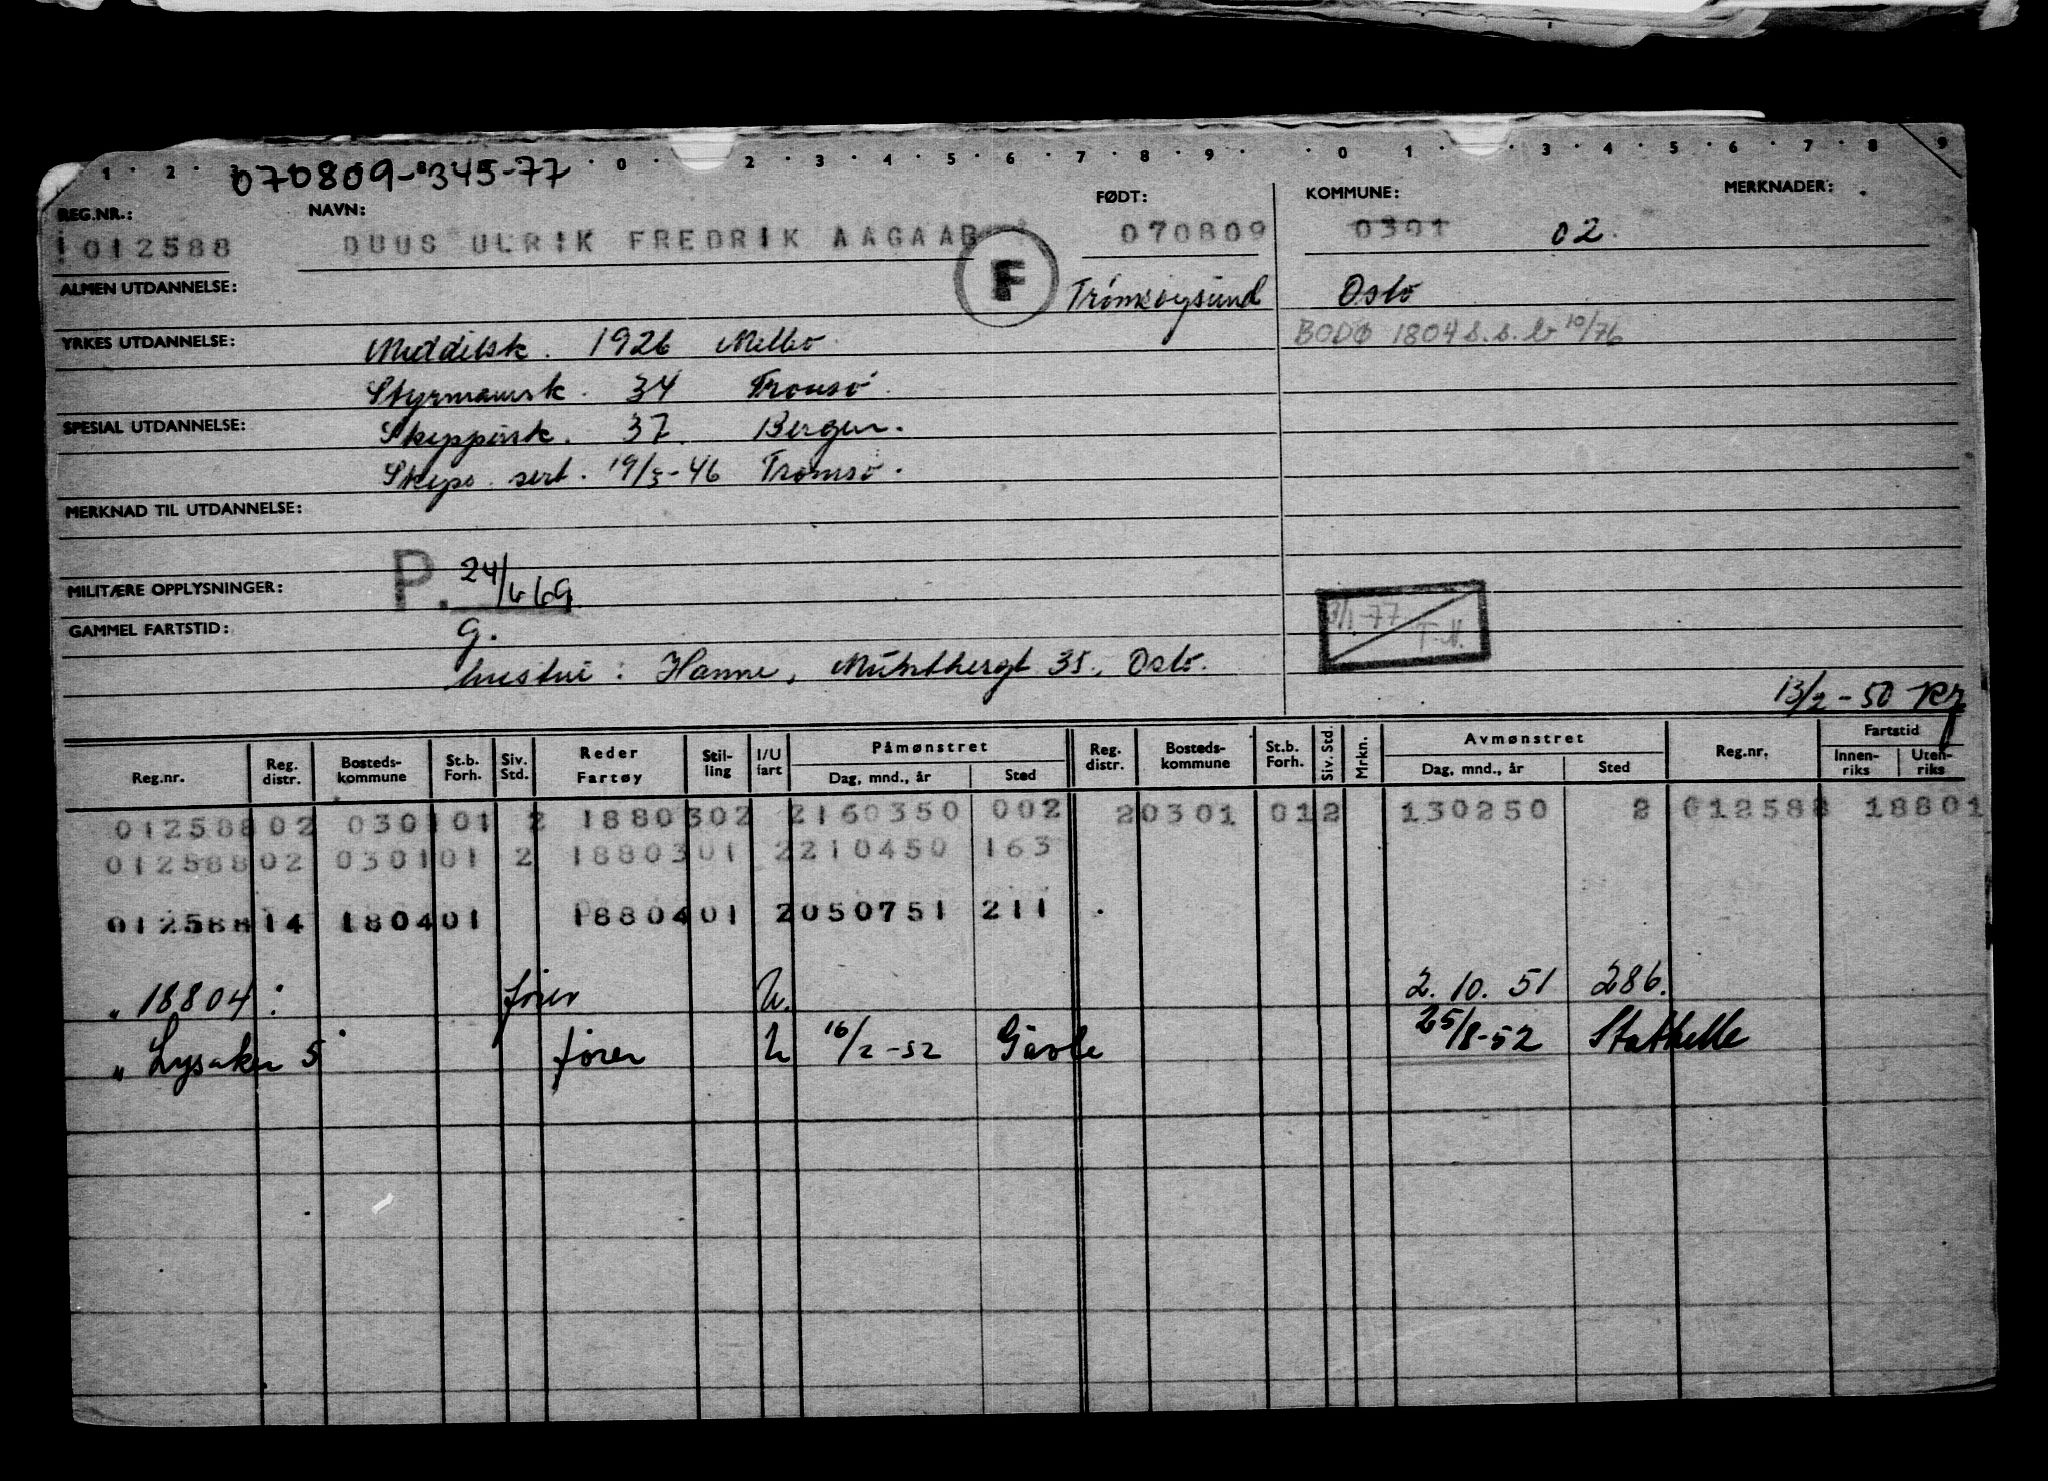 1 2 0 2 3 4 5 6 7 8 9 0 1 3 4 5 6 7 8 9
070809-345-77
REG.NR.: NAVN: FØDT: KOMMUNE: MERKNADER:
012588 DUUS ULRIK FREDRIK AAGAAR 070809 0301 02.
F
ALMEN UTDANNELSE: Oslo
YRKES UTDANNELSE: Middelsk. 1926 Melbo BODØ 1804 10/76
Styrmannsk. 34 Tromsö.
SPESIAL UTDANNELSE: Skippersk. 37. Bergen.
Skips. sert. 19/3-46 Tromsö.
MERKNAD TIL UTDANNELSE:
MILITÆRE OPPLYSNINGER: P. 24/6 69
3/1-77 T-N.
GAMMEL FARTSTID: G.
hustru: Hanne, 35, Oslo.
13/2-50
Reg.nr. Reg. distr. Bosteds-kommune St.b. Forh. Siv. Std. Reder Fartøy Stil-ling I/U fart Påmønstret Dag, mnd., år Sted Reg. distr. Bosteds-kommune St.b. Forh. Siv. Std. Mrkn. Avmønstret Dag, mnd., år Sted Reg.nr. Fartstid Innen-riks Uten-riks
01258802 030101 2 1880302 2160350 002 20301 012 130250 2 012588 18801
01258802 030101 2 1880301 2210450 163
01258814 180401 1880401 2050751 211
" 18804: fører U. 2.10.51 286.
" Lysaker 5 fører U 16/2-52 Gävle 25/8-52 Stathelle